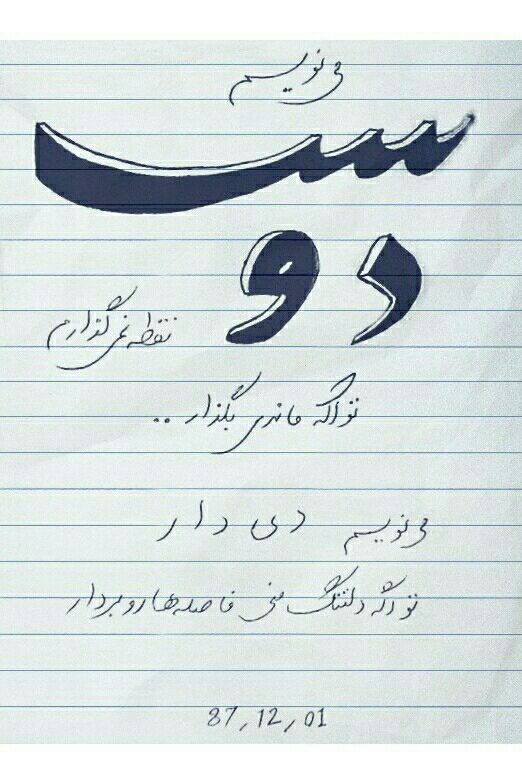 می نویسم
دوسٮ
نقطه نمی گذارم
تو اگه ماندی بگذار ..
می نویسم دی دار
تو اگه دلتنگ منی فاصله ها رو بردار
87,12,01